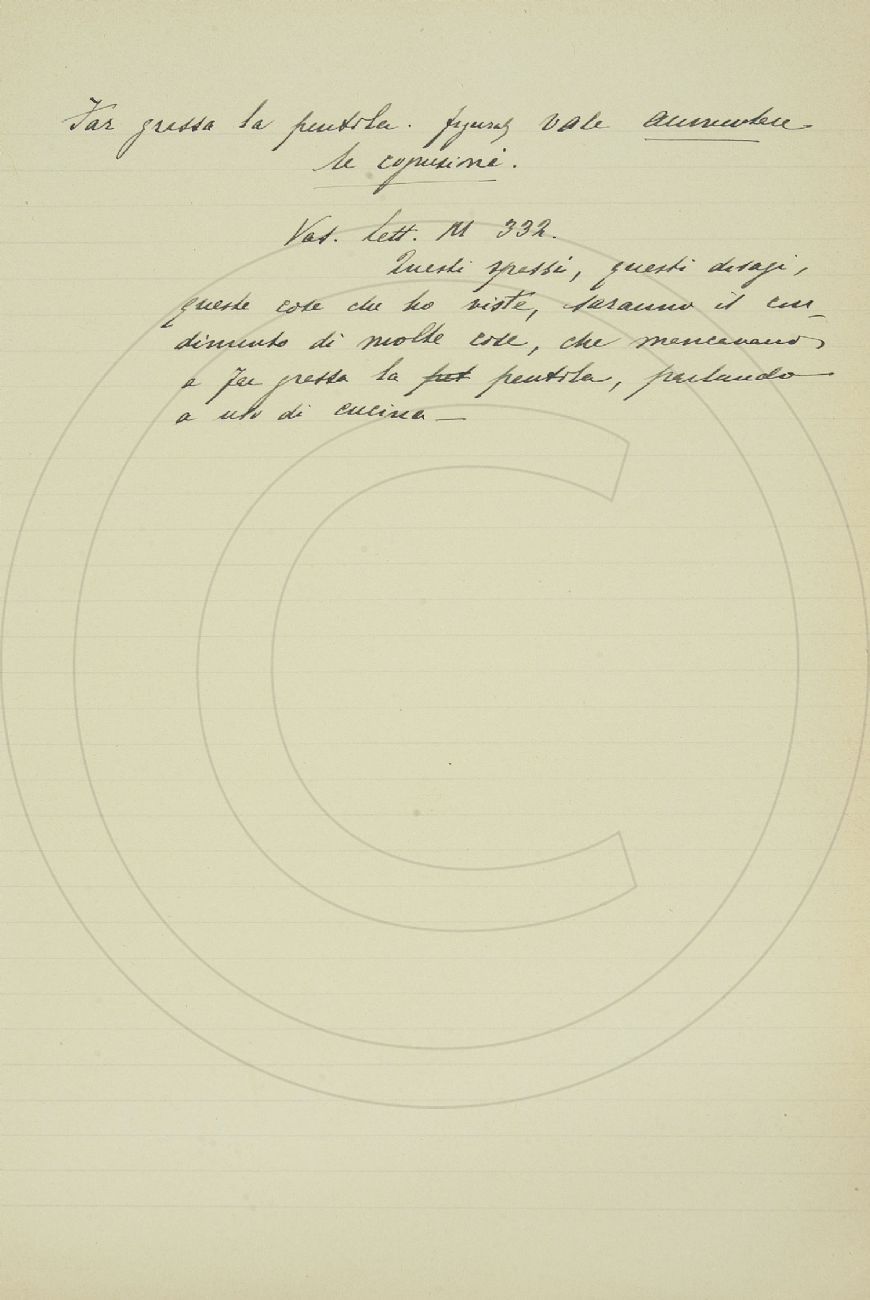 Far grassa la pentola. figurat vale aumentare
le cognizioni.
Vas. Lett. M 332.
Questi spassi, questi disagi,
queste cose che ho viste, saranno il con-
dimento di molte cose, che mancavano
a far grassa la pentola, parlando
a uso di cucina —